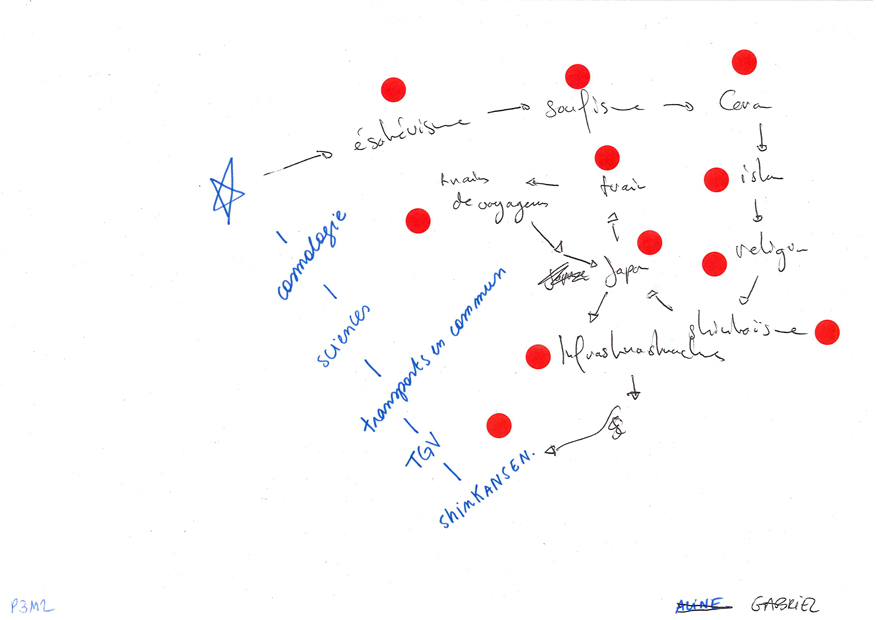 ésotérisme
soufisme
Cora
islam
religion
shintoïsme
Japon
train
trains
de voyageurs
Infrastructures
cosmologie
sciences
transports en commun
TGV
shinKANSEN.
P3M2
ALINE GABRIEL